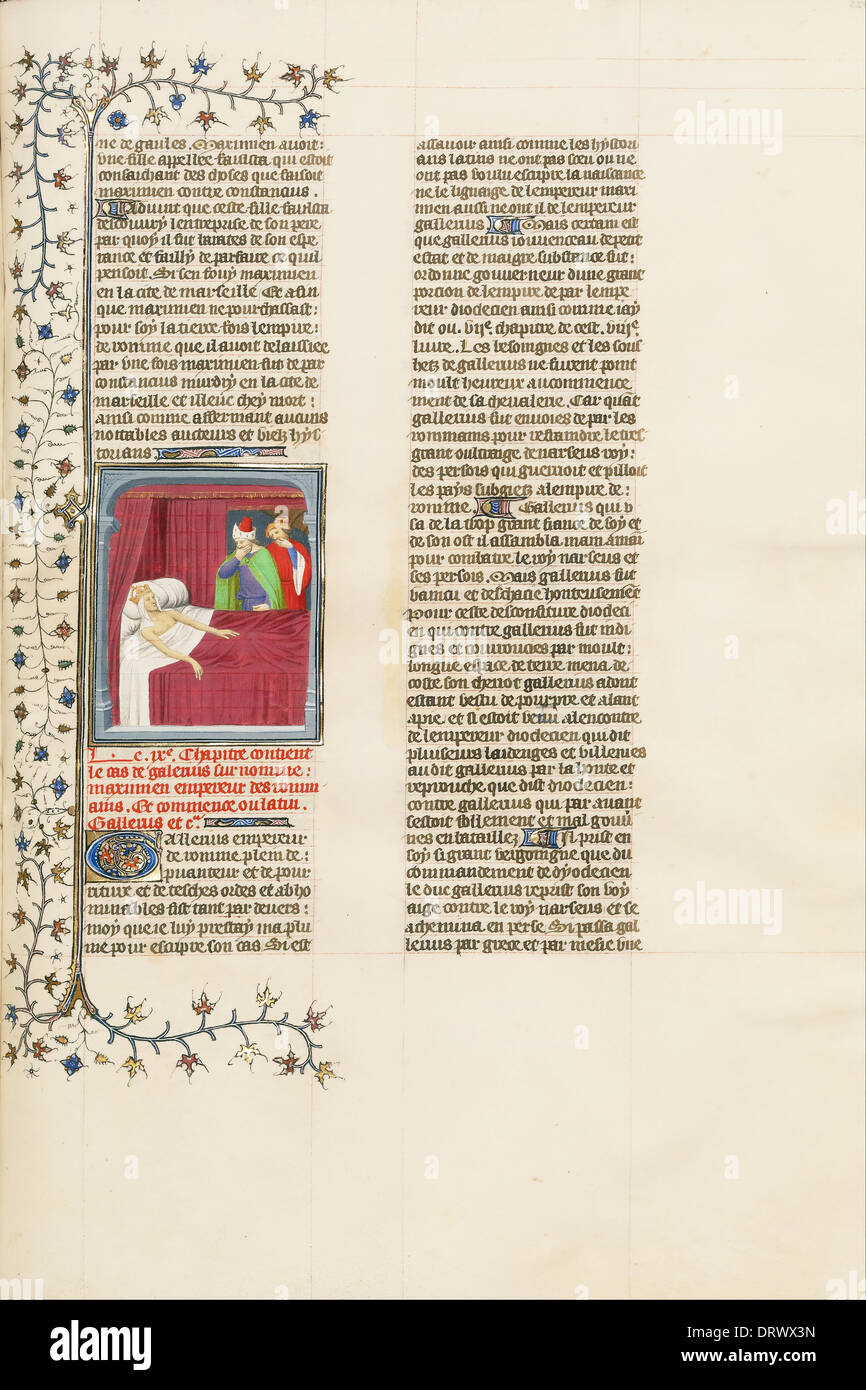 ne de gaules. Maximien auoit:
vne fille appellee fausta qui estoit
consachant des choses que faisoit
maximien contre constancius.
Aduint que ceste fille fausta
descouury lentreprise de son pere
par quoy il fut taxates de son espe
rance et failly de parfaire ce quil
pensoit. Si sen fouy maximien
en la cite de marseille Et afin
que maximien ne pourchassast:
pour soy la tierce fois lempire:
de romme que il auoit delaissiee
par vne fois maximien fut de par
constancius murdry en la cite de
marseille et illeuc chey mort:
ainsi comme afferment aucuns
nottables aucteurs et vielz hys
torians
Le .ixe. Chapitre contient
le cas de galerius surnomme:
maximien empereur des romm
ains. Et commence ou latin.
Gallerius et cª.
Gallerius empereur
de romme plein de:
puanteur et de pour
riture et de tesches ordes et abho
minables fist tant par deuers:
moy que ie luy prestay ma plu
me pour escripre son cas. Si est
assauoir ainsi comme les hystori
ans latins ne ont pas sceu ou ne
ont pas voulu escripre la naissance
ne le lignaige de lempereur maxi
mien aussi ne ont il de lempereur
gallerius Mais certain est
que gallerius iouuenceau de petit
estat et de maigre substance fut:
ordonne gouuerneur dune grant
porcion de lempire de par lempe
reur dioclecien ainsi comme iay
dit ou .viie. chapitre de cest .viije.
liure. Les besoingnes et les souh
hetz de gallerius ne furent point
moult heureux au commence
ment de sa cheualerie. Car quant
gallerius fut enuoies de par les
rommains pour restraindre le tres
grant oultraige de narseus roy:
des persois qui guerrioit et pilloit
les pays subgietz a lempire de:
romme. Gallerius qui v
sa de la trop grant fiance de soy et
de son ost il assambla main a main
pour combatre le roy narseus et
ses persois. Mais gallerius fut
vaincu et deschacie honteusement
Pour ceste desconfiture diocleci
en qui contre gallerius fut indi
gnes et courroucies par moult:
longue espace de terre mena de
coste son chariot gallerius adont
estant vestu de pourpre et alant
a pie et si estoit venu a lencontre
de lempereur dioclecien qui dit
pluiseurs laidenges et villenies
au dit gallerius par la honte et
reprouche que dist dioclecien:
contre gallerius qui par auant
sestoit follement et mal gouu
nes en bataillez Il prist en
soy si grant vergoingne que du
commandement de dyoclecien
le duc gallerius reprist son voy
aige contre le roy narseus et se
achemina en perse. Si passa gal
lerius par grece et par mesie vne
alamy
Image ID: DRWX3N
www.alamy.com